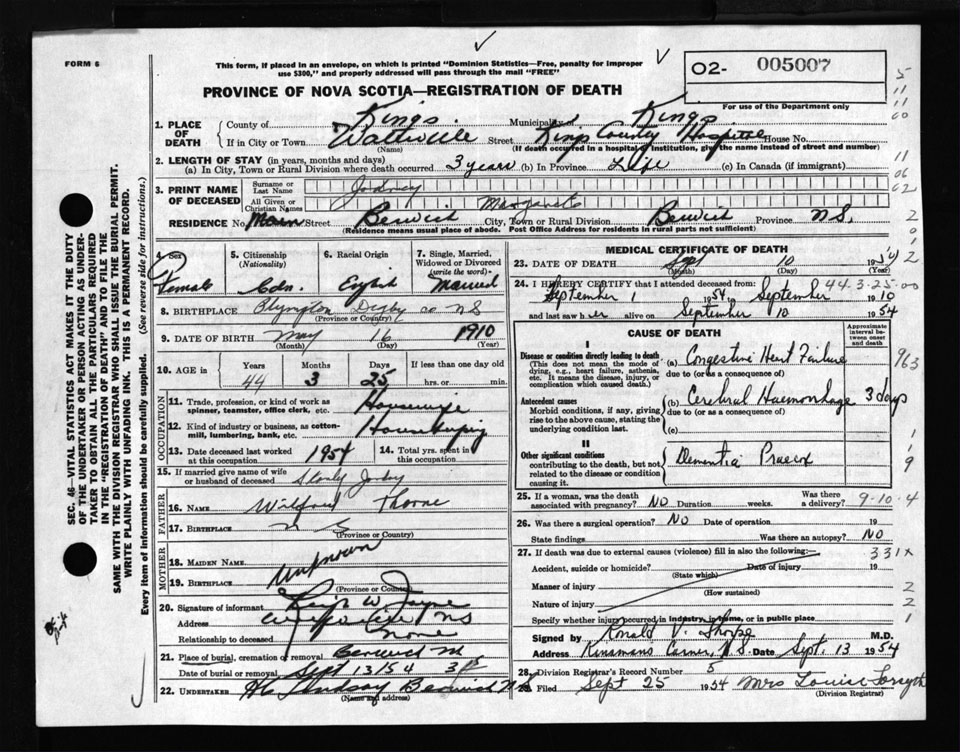 FORM 6
This form, if placed in an envelope, on which is printed "Dominion Statistics—Free, penalty for improper
use $300," and properly addressed will pass through the mail "FREE"
02- 005007
For use of the Department only
PROVINCE OF NOVA SCOTIA—REGISTRATION OF DEATH
1. PLACE OF DEATH
County of Kings Municipality of Kings
If in City or Town Waterville Street Kings County Hospital House No.
(Name) (If death occurred in a hospital, institution, give the name instead of street and number)
2. LENGTH OF STAY (in years, months and days)
(a) In City, Town or Rural Division where death occurred 3 years (b) In Province Life (c) In Canada (if immigrant)
3. PRINT NAME OF DECEASED
Surname or Last Name
All Given or Christian Names Margaret
RESIDENCE No. Main Street Berwick City, Town or Rural Division Berwick Province N.S.
(Residence means usual place of abode. Post Office Address for residents in rural parts not sufficient)
4. Sex Female
5. Citizenship (Nationality) Cdn.
6. Racial Origin English
7. Single, Married, Widowed or Divorced (write the word) Married
8. BIRTHPLACE Plympton Digby co NS
(Province or Country)
9. DATE OF BIRTH May 16 1910
(Month) (Day) (Year)
10. AGE in Years Months Days If less than one day old
44 3 25 hrs. or min.
OCCUPATION
11. Trade, profession, or kind of work as spinner, teamster, office clerk, etc. Housewife
12. Kind of industry or business, as cotton-mill, lumbering, bank, etc. Housekeeping
13. Date deceased last worked at this occupation 1954
14. Total yrs. spent in this occupation
15. If married give name of wife or husband of deceased
FATHER
16. Name Wilfred Thorne
17. Birthplace N S
(Province or Country)
MOTHER
18. MAIDEN NAME unknown
19. BIRTHPLACE
(Province or Country)
20. Signature of informant W.
Address NS
Relationship to deceased None
21. Place of burial, cremation or removal Berwick
Date of burial or removal Sept 13/54
22. UNDERTAKER Lindsay Berwick N.S.
(Name and address)
MEDICAL CERTIFICATE OF DEATH
23. DATE OF DEATH Sept 10 1954
(Month) (Day) (Year)
24. I HEREBY CERTIFY that I attended deceased from: 44.3-25.00
September 1 1954, September 10
and last saw her alive on September 10 1954
CAUSE OF DEATH
Approximate interval between onset and death
I
Disease or condition directly leading to death (a) Congestive Heart Failure 963
(This does not mean the mode of dying, e.g., heart failure, asthenia, etc. It means the disease, injury, or complication which caused death.)
due to (or as a consequence of)
Antecedent causes (b) Cerebral Haemorrhage 3 days
Morbid conditions, if any, giving rise to the above cause, stating the underlying condition last.
due to (or as a consequence of)
(c)
II
Other significant conditions Dementia Praecox
contributing to the death, but not related to the disease or condition causing it.
25. If a woman, was the death associated with pregnancy? NO Duration weeks. Was there a delivery? 9-10-4
26. Was there a surgical operation? NO Date of operation 19
State findings Was there an autopsy? NO
27. If death was due to external causes (violence) fill in also the following:— 331X
Accident, suicide or homicide? Date of injury 19
(State which)
Manner of injury 2
(How sustained)
Nature of injury 2
Specify whether injury occurred in industry, in home, or in public place 1
Signed by Ronald V. Thorpe M.D.
Address Kinsmans Corner, N.S. Date Sept. 13 1954
28. Division Registrar's Record Number 5
29. Filed Sept 25 1954 Mrs Louise Forsyth
(Division Registrar)
SEC. 46—VITAL STATISTICS ACT MAKES IT THE DUTY
OF THE UNDERTAKER OR PERSON ACTING AS UNDER-
TAKER TO OBTAIN ALL THE PARTICULARS REQUIRED
IN THE "REGISTRATION OF DEATH" AND TO FILE THE
SAME WITH THE DIVISION REGISTRAR WHO SHALL ISSUE THE BURIAL PERMIT.
WRITE PLAINLY WITH UNFADING INK. THIS IS A PERMANENT RECORD.
Every item of information should be carefully supplied. (See reverse side for instructions.)